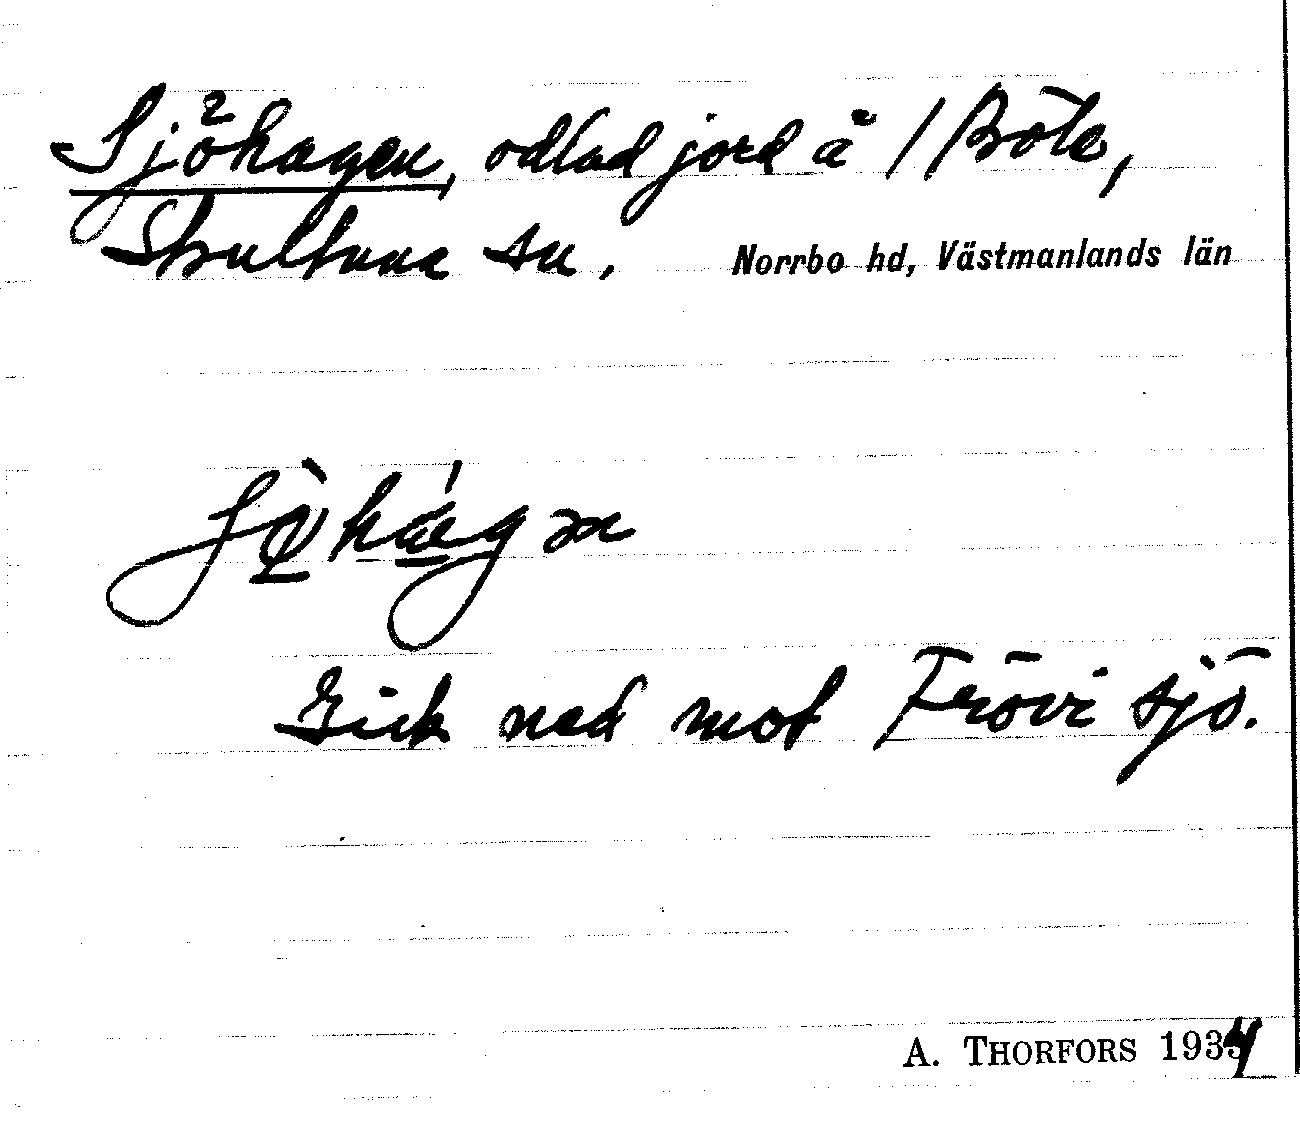 Sjöhagen, odlad jord å // Böle,
Skultuna sn. Norrbo hd, Västmanlands län
Gick ned mot Frövi sjö.
A. THORFORS 1934